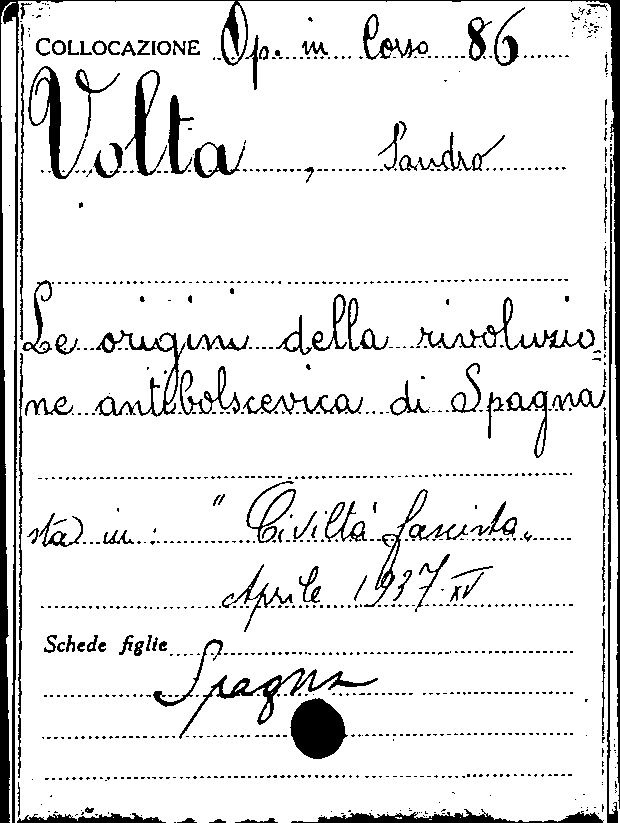 COLLOCAZIONE Op. in Corso 86
Volta, Sandro
Le origini della rivoluzio=
ne antibolscevica di Spagna
sta in: "Civiltà fascista"
Aprile 1937. XV
Schede figlie
Spagna